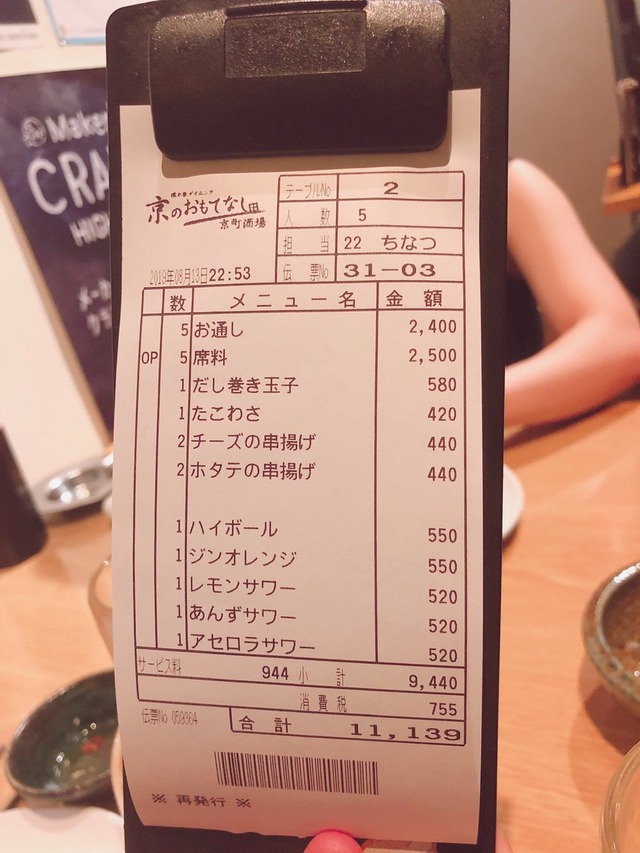 Maker
CRA
HIGH
メーカ
クラ
隠れ家ダイニング
京のおもてなし
京町酒場
テーブルNo 2
人数 5
担当 22 ちなつ
伝票No 31-03
2019年08月13日22:53
数 メニュー名 金額
5 お通し 2,400
OP 5 席料 2,500
1 だし巻き玉子 580
1 たこわさ 420
2 チーズの串揚げ 440
2 ホタテの串揚げ 440
1 ハイボール 550
1 ジンオレンジ 550
1 レモンサワー 520
1 あんずサワー 520
1 アセロラサワー 520
サービス料 944 小計 9,440
消費税 755
伝票No 059364
合計 11,139
※ 再発行 ※